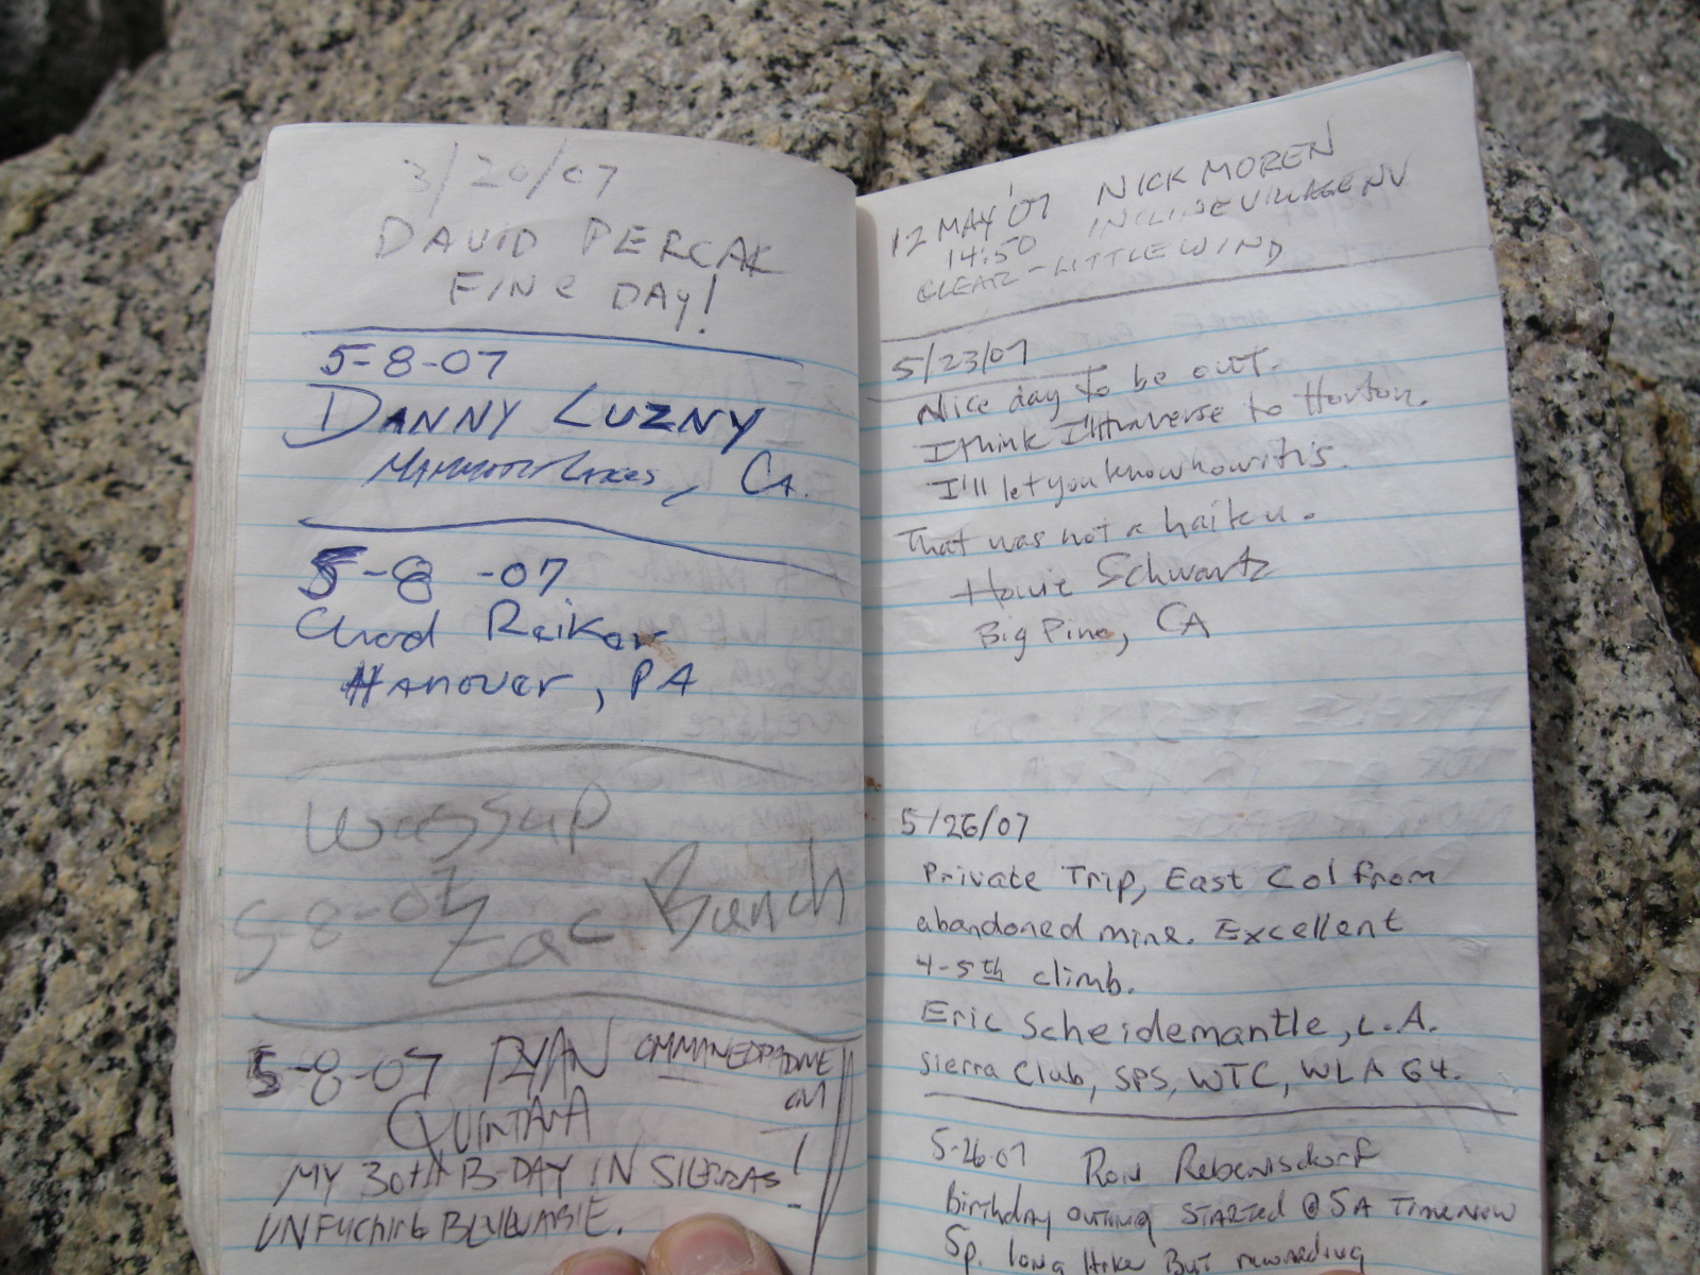 3/20/07
DAVID PERCAK
FINE DAY!
5-8-07
DANNY LUZNY
MAMMOTH LAKES, CA.
5-8-07
Chad Raiker
HANOVER, PA
wassup
5-8-07 Zac Bunch
5-8-07 RYAN
QUINTANA
MY 30th B-DAY IN SIERRAS
12 MAY '07 NICK MOREN
14:50 INCLINE VILLAGE NV
CLEAR - LITTLE WIND
5/23/07
Nice day to be out.
I think I'll traverse to Horton.
I'll let you know how it is.
That was not a haiku.
Howie Schwartz
Big Pine, CA
5/26/07
Private Trip, East Col from
abandoned mine. Excellent
4-5th climb.
Eric Scheidemantle, L.A.
Sierra Club, SPS, WTC, WLA G4.
5-26-07
Birthday outing STARTED @ 5A Time now
5p. long Hike But rewarding